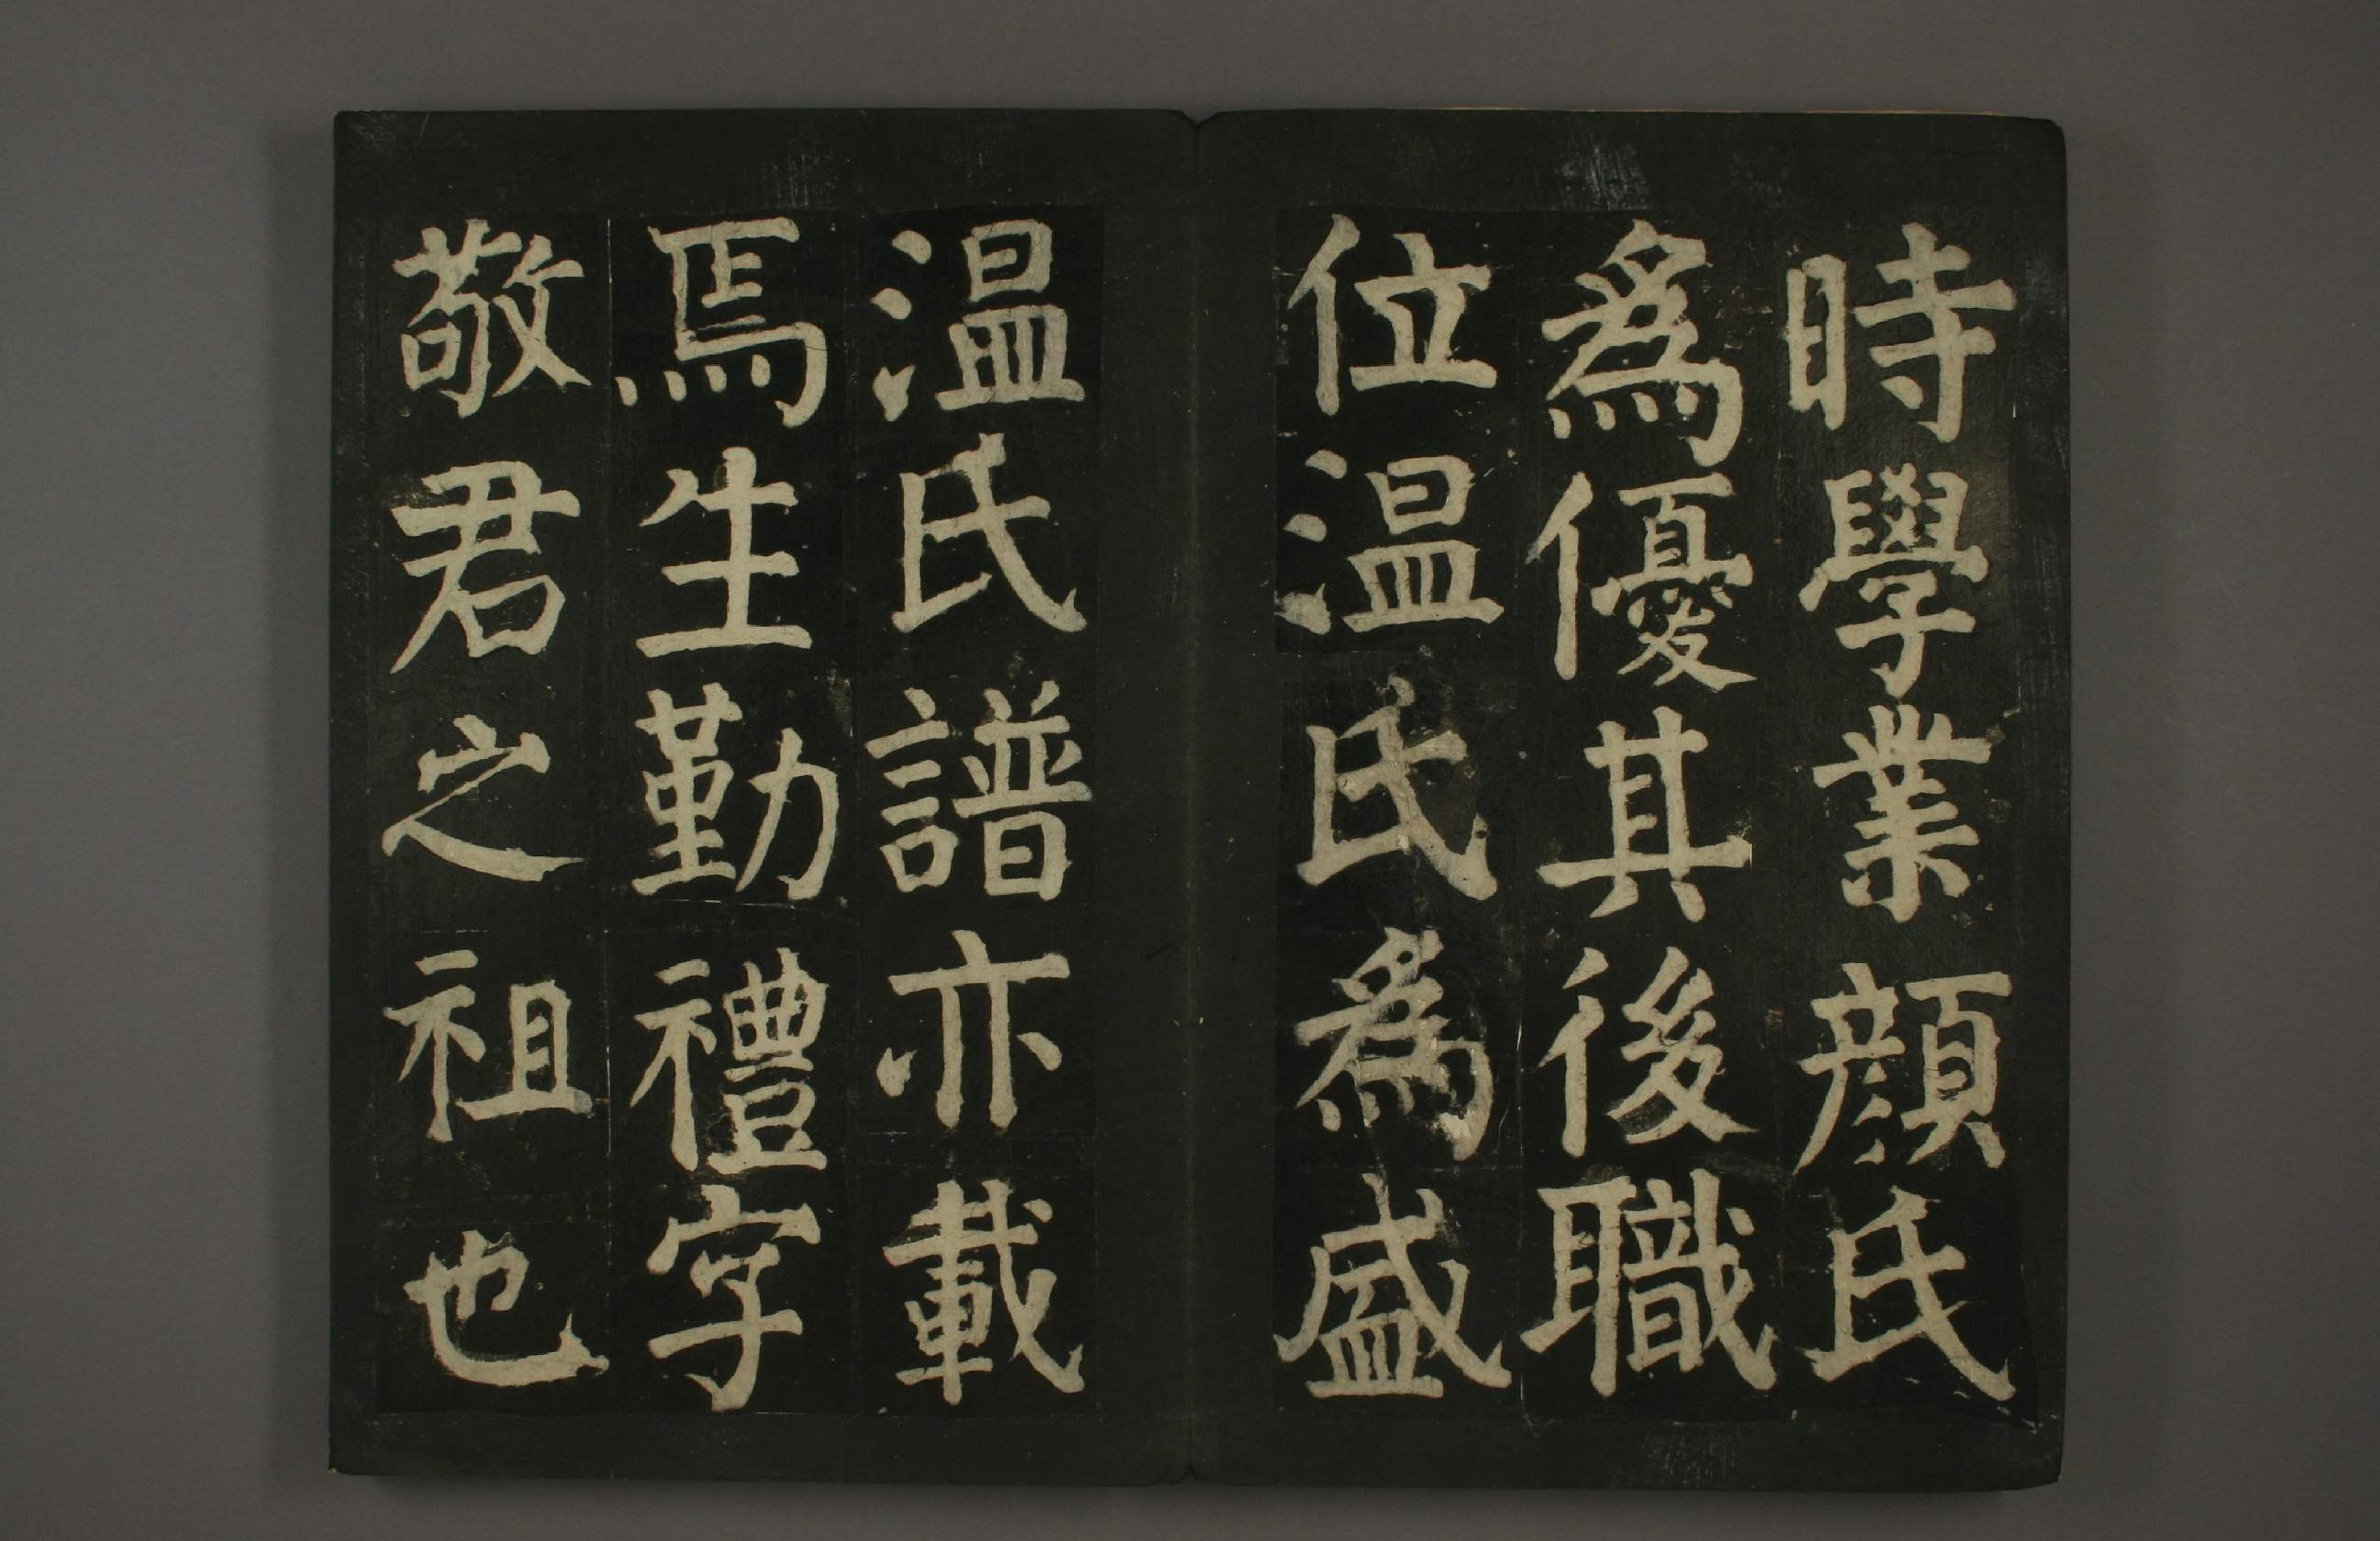 時學業顏氏
為優其後職
位温氏為盛
温氏譜亦載
焉生勤禮字
敬君之祖也